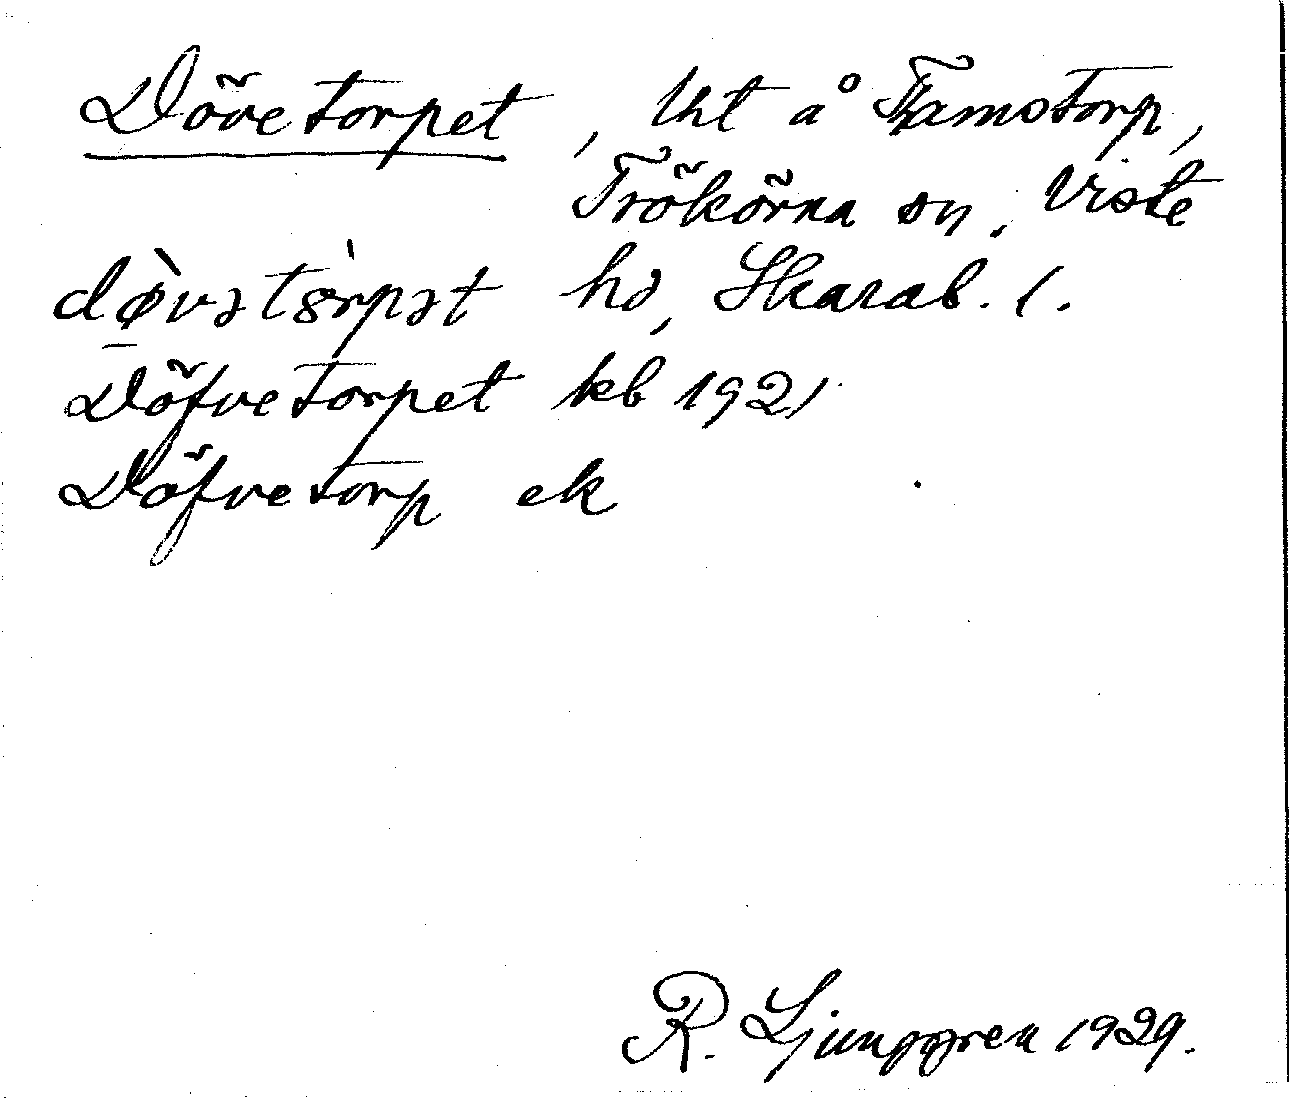 Dövetorpet, lht å Famstorp,
Trökörna sn, Viste
dø̀vətòrpət hd, Skarab. l.
Döfvetorpet kb 1921
Döfvetorp ek
R. Ljunggren 1929.